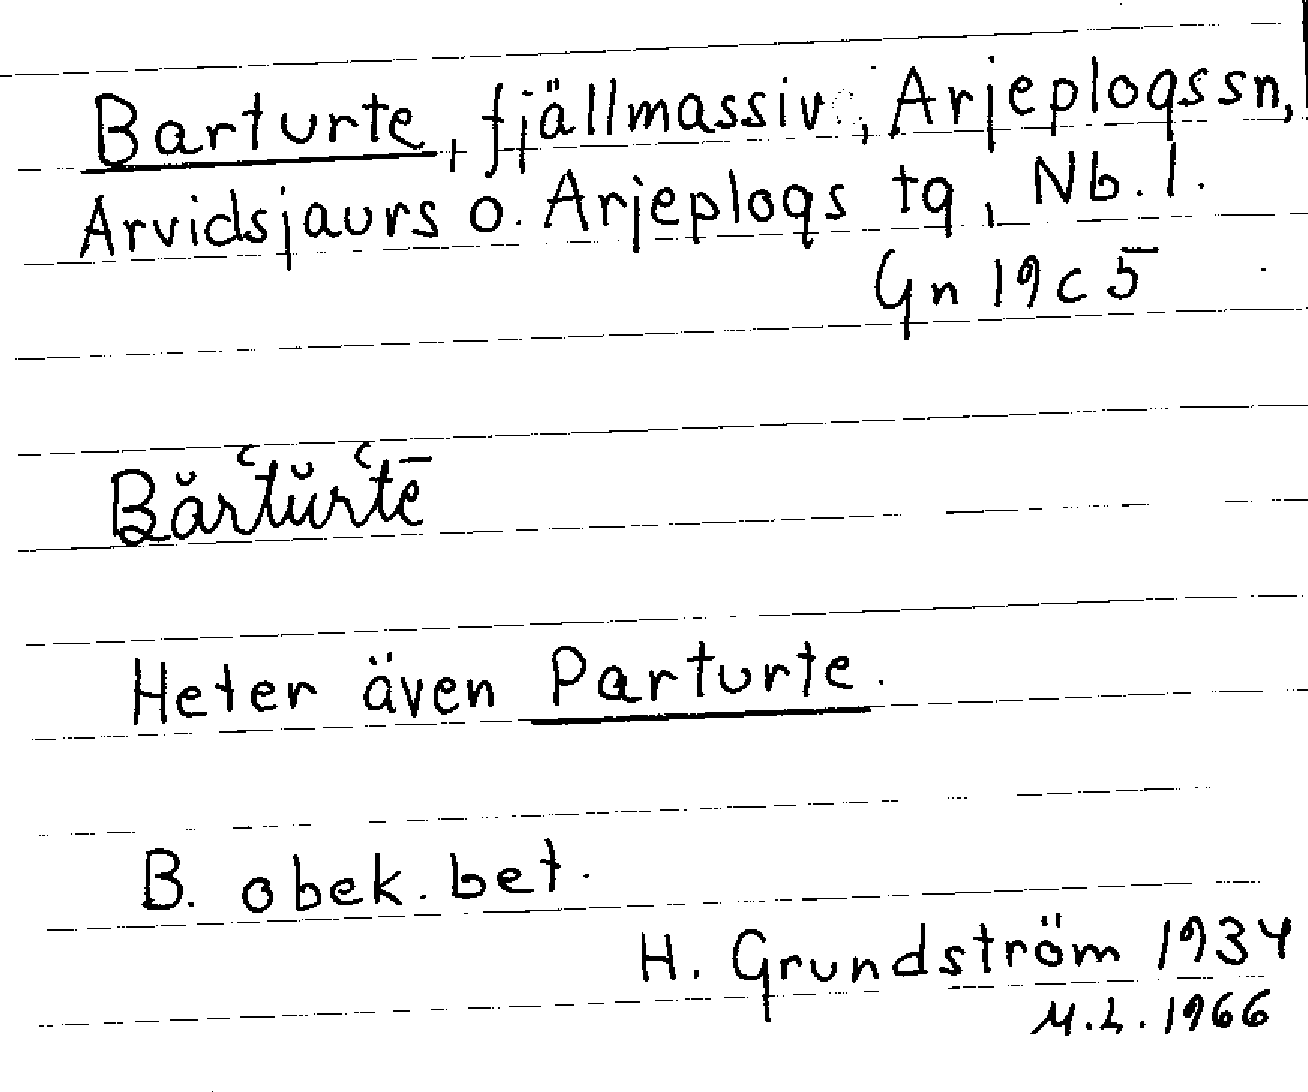 Barturte, fjällmassiv, Arjeplogssn,
Arvidsjaurs o. Arjeplogs tg, Nb. l.
Gn 19 c 5
Bărʿtŭrʿtē
Heter även Parturte.
B. obek. bet.
H. Grundström 1934
M.L. 1966